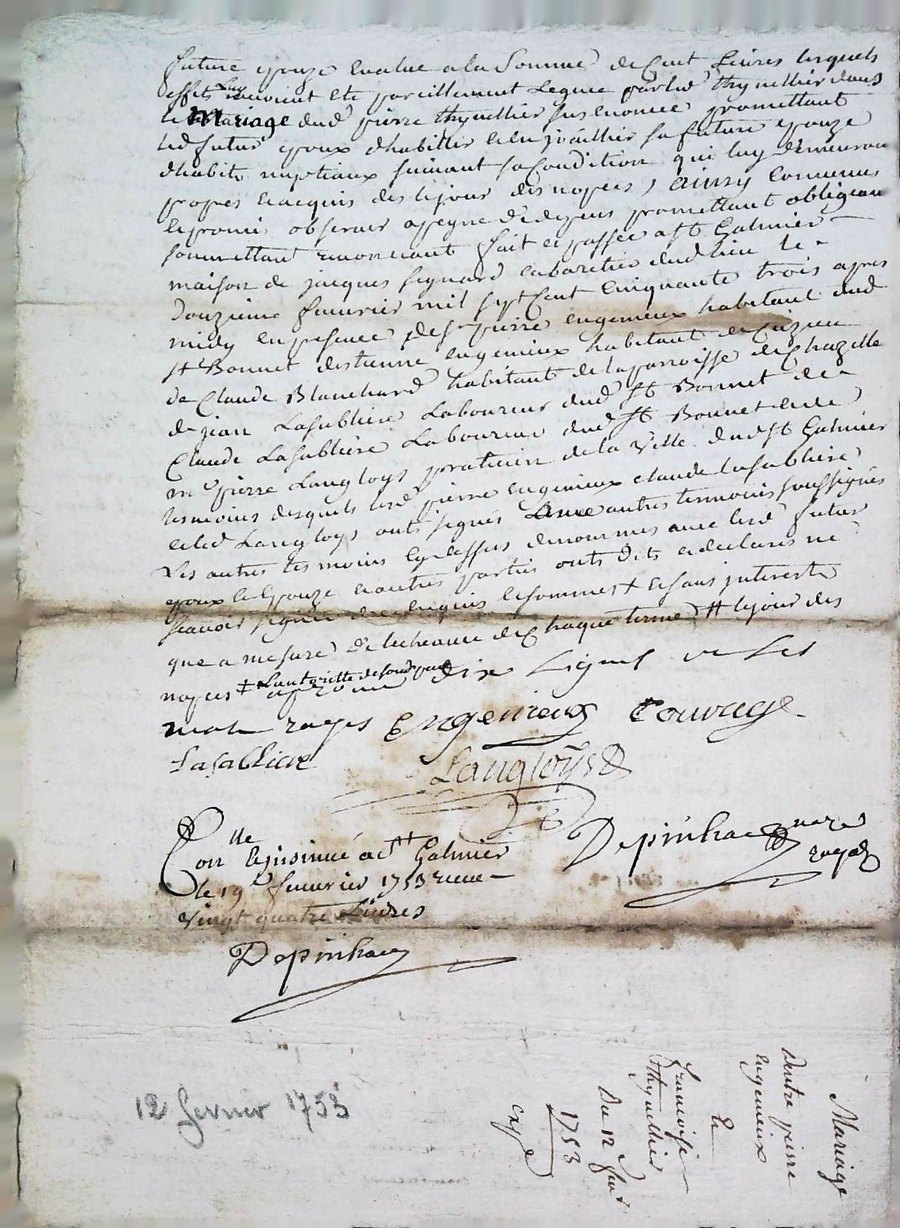 future epouze evalué a la Somme de Cent Livres lesquels
effets luy auroient eté pareillement legué par led thyuellier dans
le Mariage dud pierre thyuellier susenoncée promettant
led futur epoux d'habiller et enjoaillier sa future epouze
d'habits nuptiaux suivant sa Condition qui luy demeureront
propres et acquis des le jour des nopces, Ainsy Convenus
et promis observer a peyne de depens promettant obligeant
soumettant renoncant fait et passée a St Galmier
maison de jacques cabaretier dud lieu le
Douzieme feuurier mil sept Cent Cinquante trois apres
midy en presence de Sr pierre engenieux habitant dud
St Bonnet d'estienne engenieux habitant de Cuzieu
de Claude Blanchard habitant de la parroisse de Chazelle
de jean Lasabliere Laboureur dud St Bonnet de
Claude Lasabliere Laboureur dud St Bonnet et de
me pierre Langloys praticien de la Ville dud St Galmier
tesmoins desquels led pierre engenieux claude lasabliere
et led Langloys onts signés autres tesmoins soussignés
Les autres tesmoins cy dessus denommés avec led futur
epoux et epouze et autres parties onts dits et declarés ne
scavoir signée de ce enquis et sommes + et sans interests
que a mesure de lecheance de Chaque terme # le jour des
nopces ‡ Lautoritte de son pere dix Lignes Les
mots rayes Engenieux Couvage
Lasabliere
Langloys
Depinhac nore
royal
Con lle et insinué a St Galmier
le 19e feuurier 1753 receu
Vingt quatre Livres
Depinhac
12 fevrier 1753
Mariage
Dentre pierre
Engenieux
Et
Francoise
thyuellier
Du 12 feur
1753
exp e